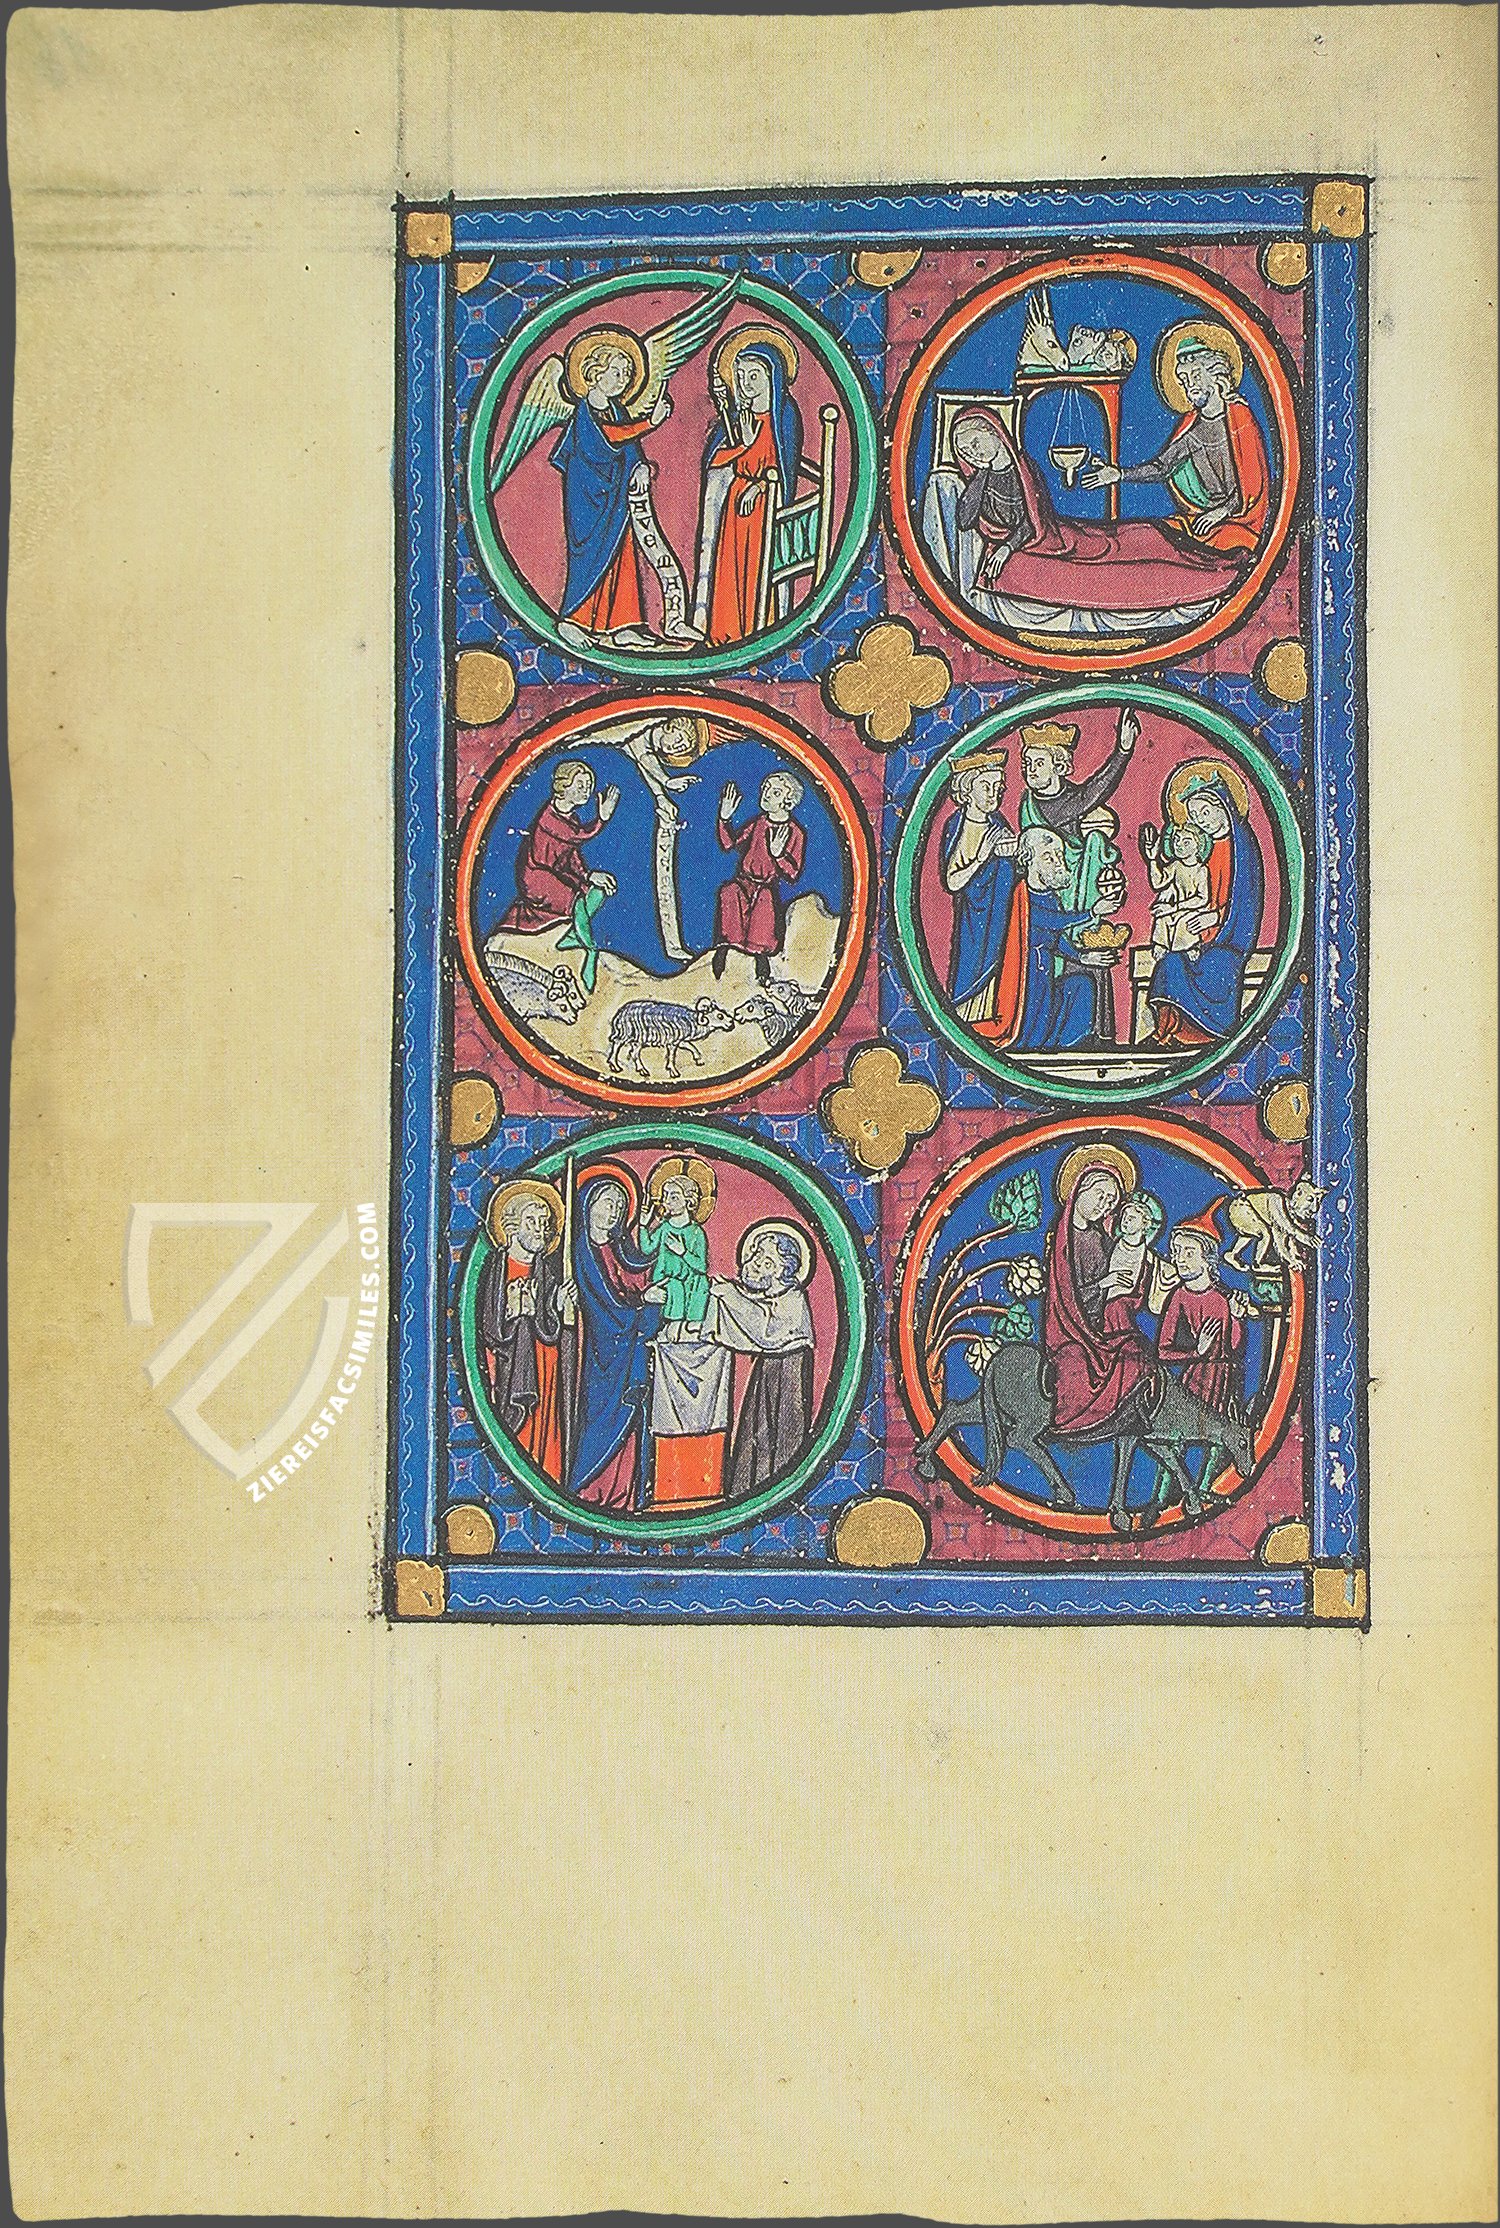 AVE MARI
ZIEREISFACSIMILES.COM